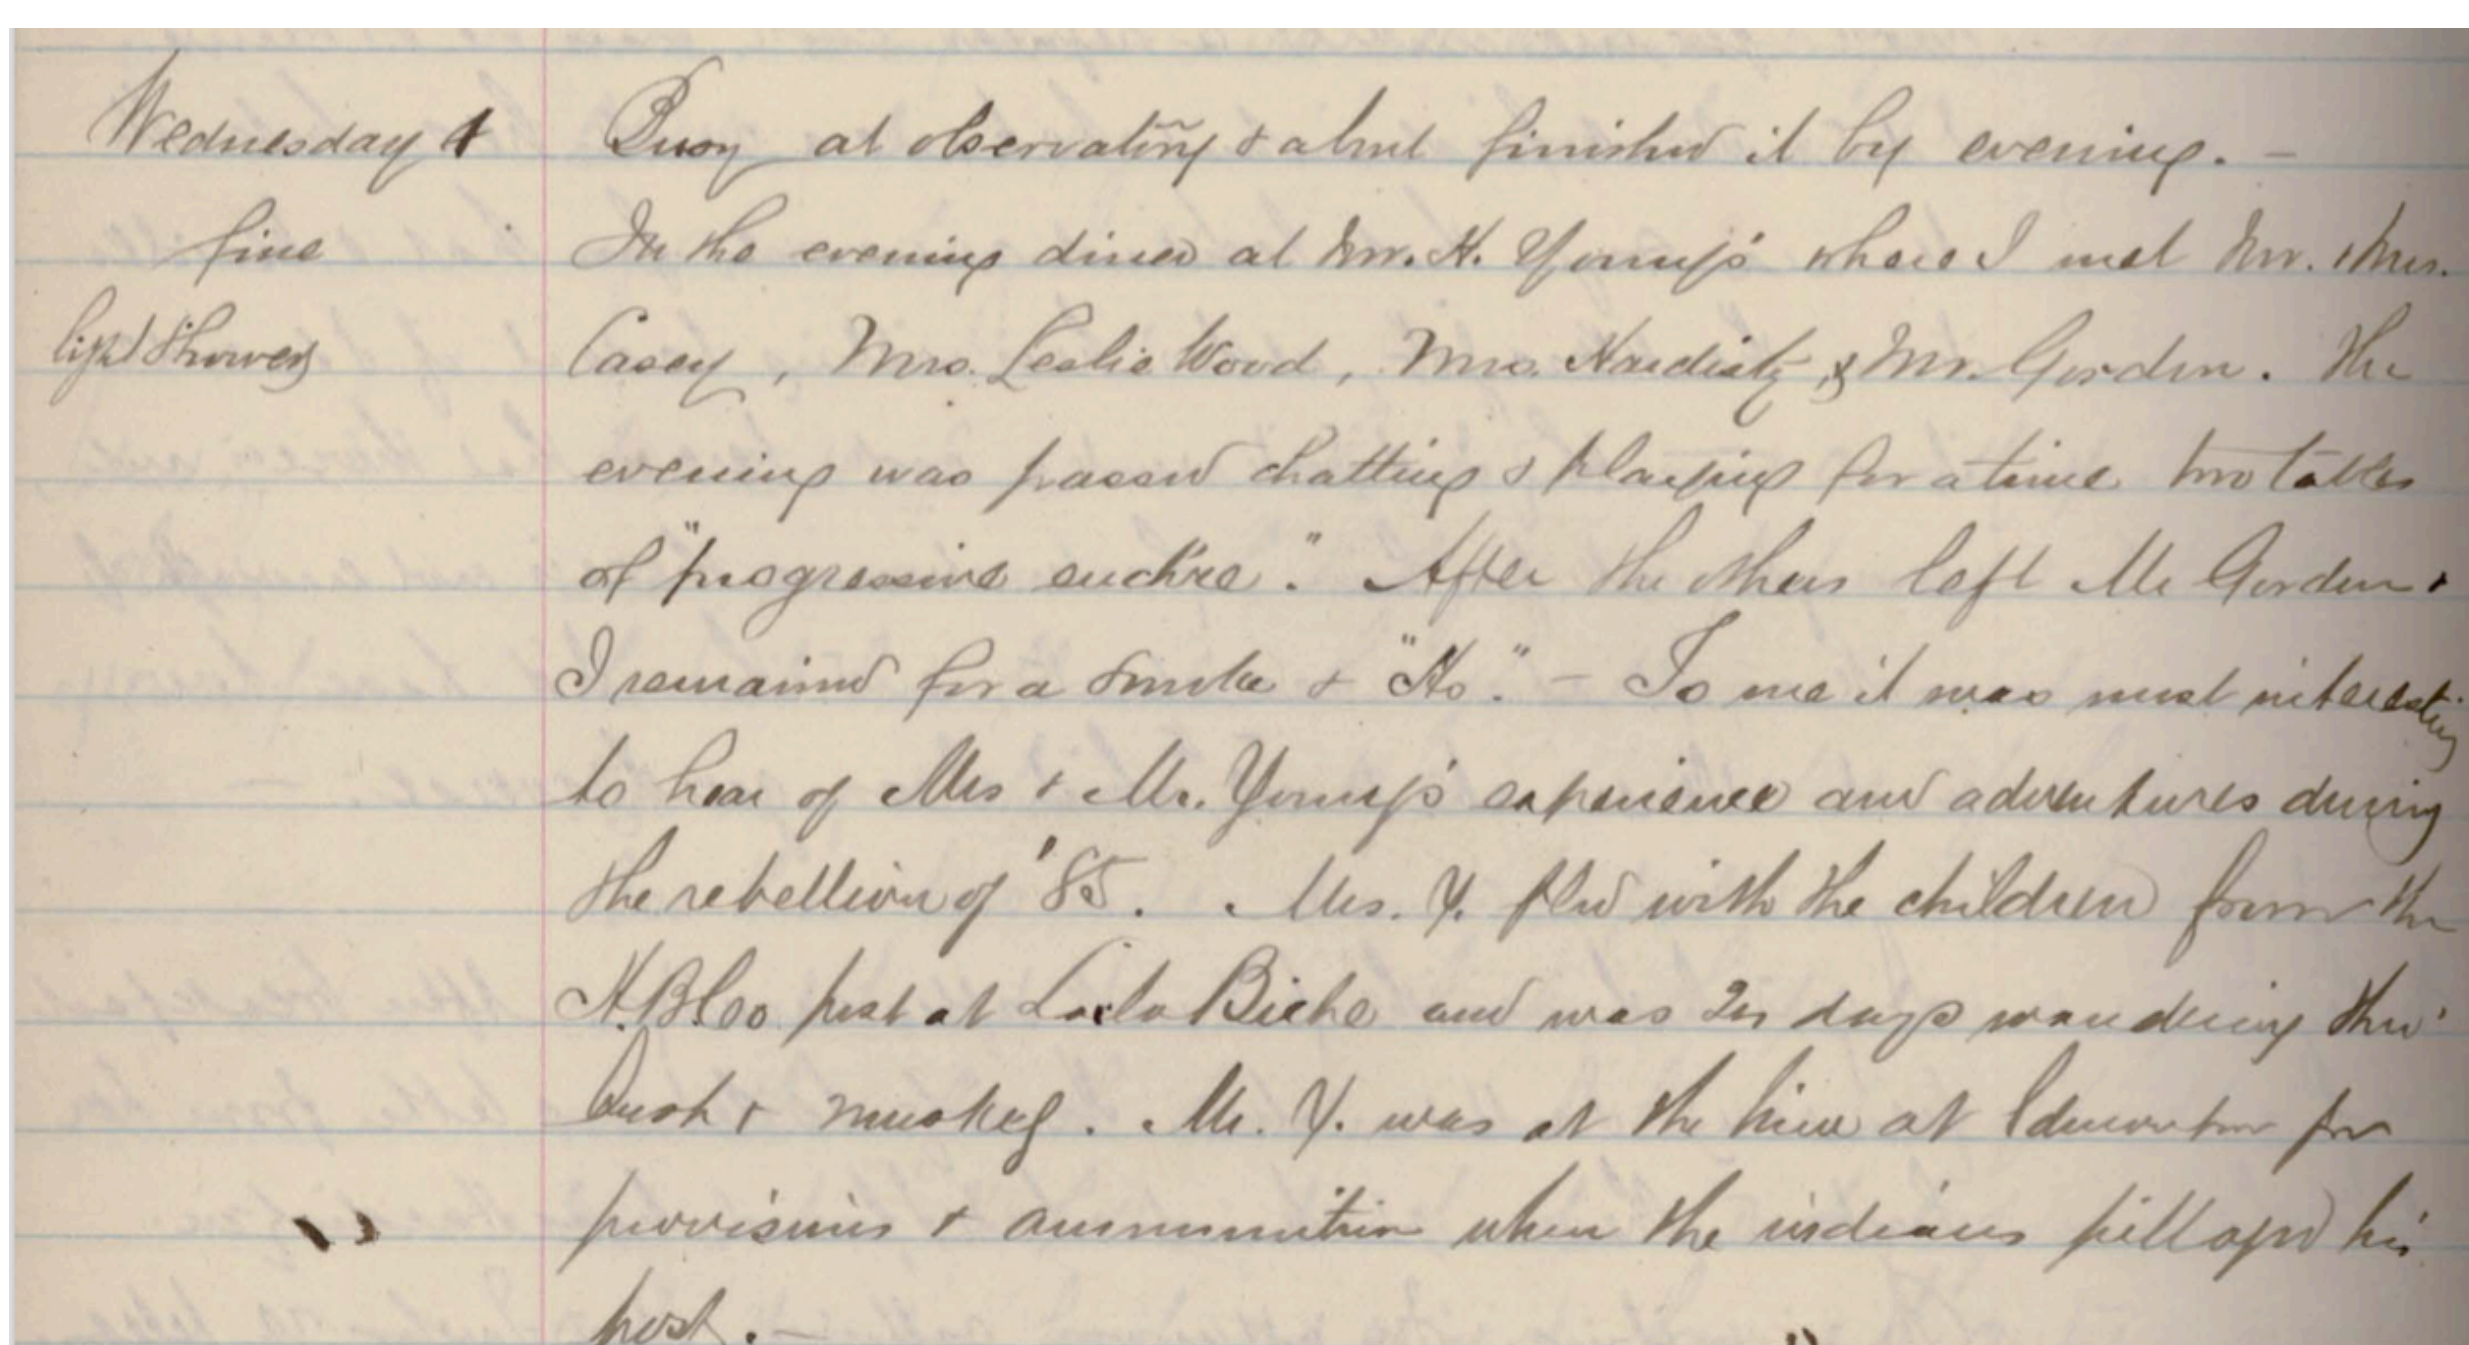 Wednesday 1 Busy at observatory & about finished it by evening. –
fine In the evening dined at Mr. H. Young's where I met Mr. & Mrs.
light showers Casey, Mrs. Leslie Wood, Mrs. Hardisty, & Mr. Gordon. The
evening was passed chatting & playing for a time two tables
of "progressive euchre." After the others left Mr Gordon &
I remained for a smoke & "Ho." – To me it was most interesting
to hear of Mrs & Mr. Young's experience and adventures during
the rebellion of '85. Mrs. Y. fled with the children from the
H.B.Co post at Lac la Biche and was days wandering thro'
bush & muskeg. Mr. Y. was at the time at Edmonton for
provisions & ammunition when the indians pillaged his
post. –